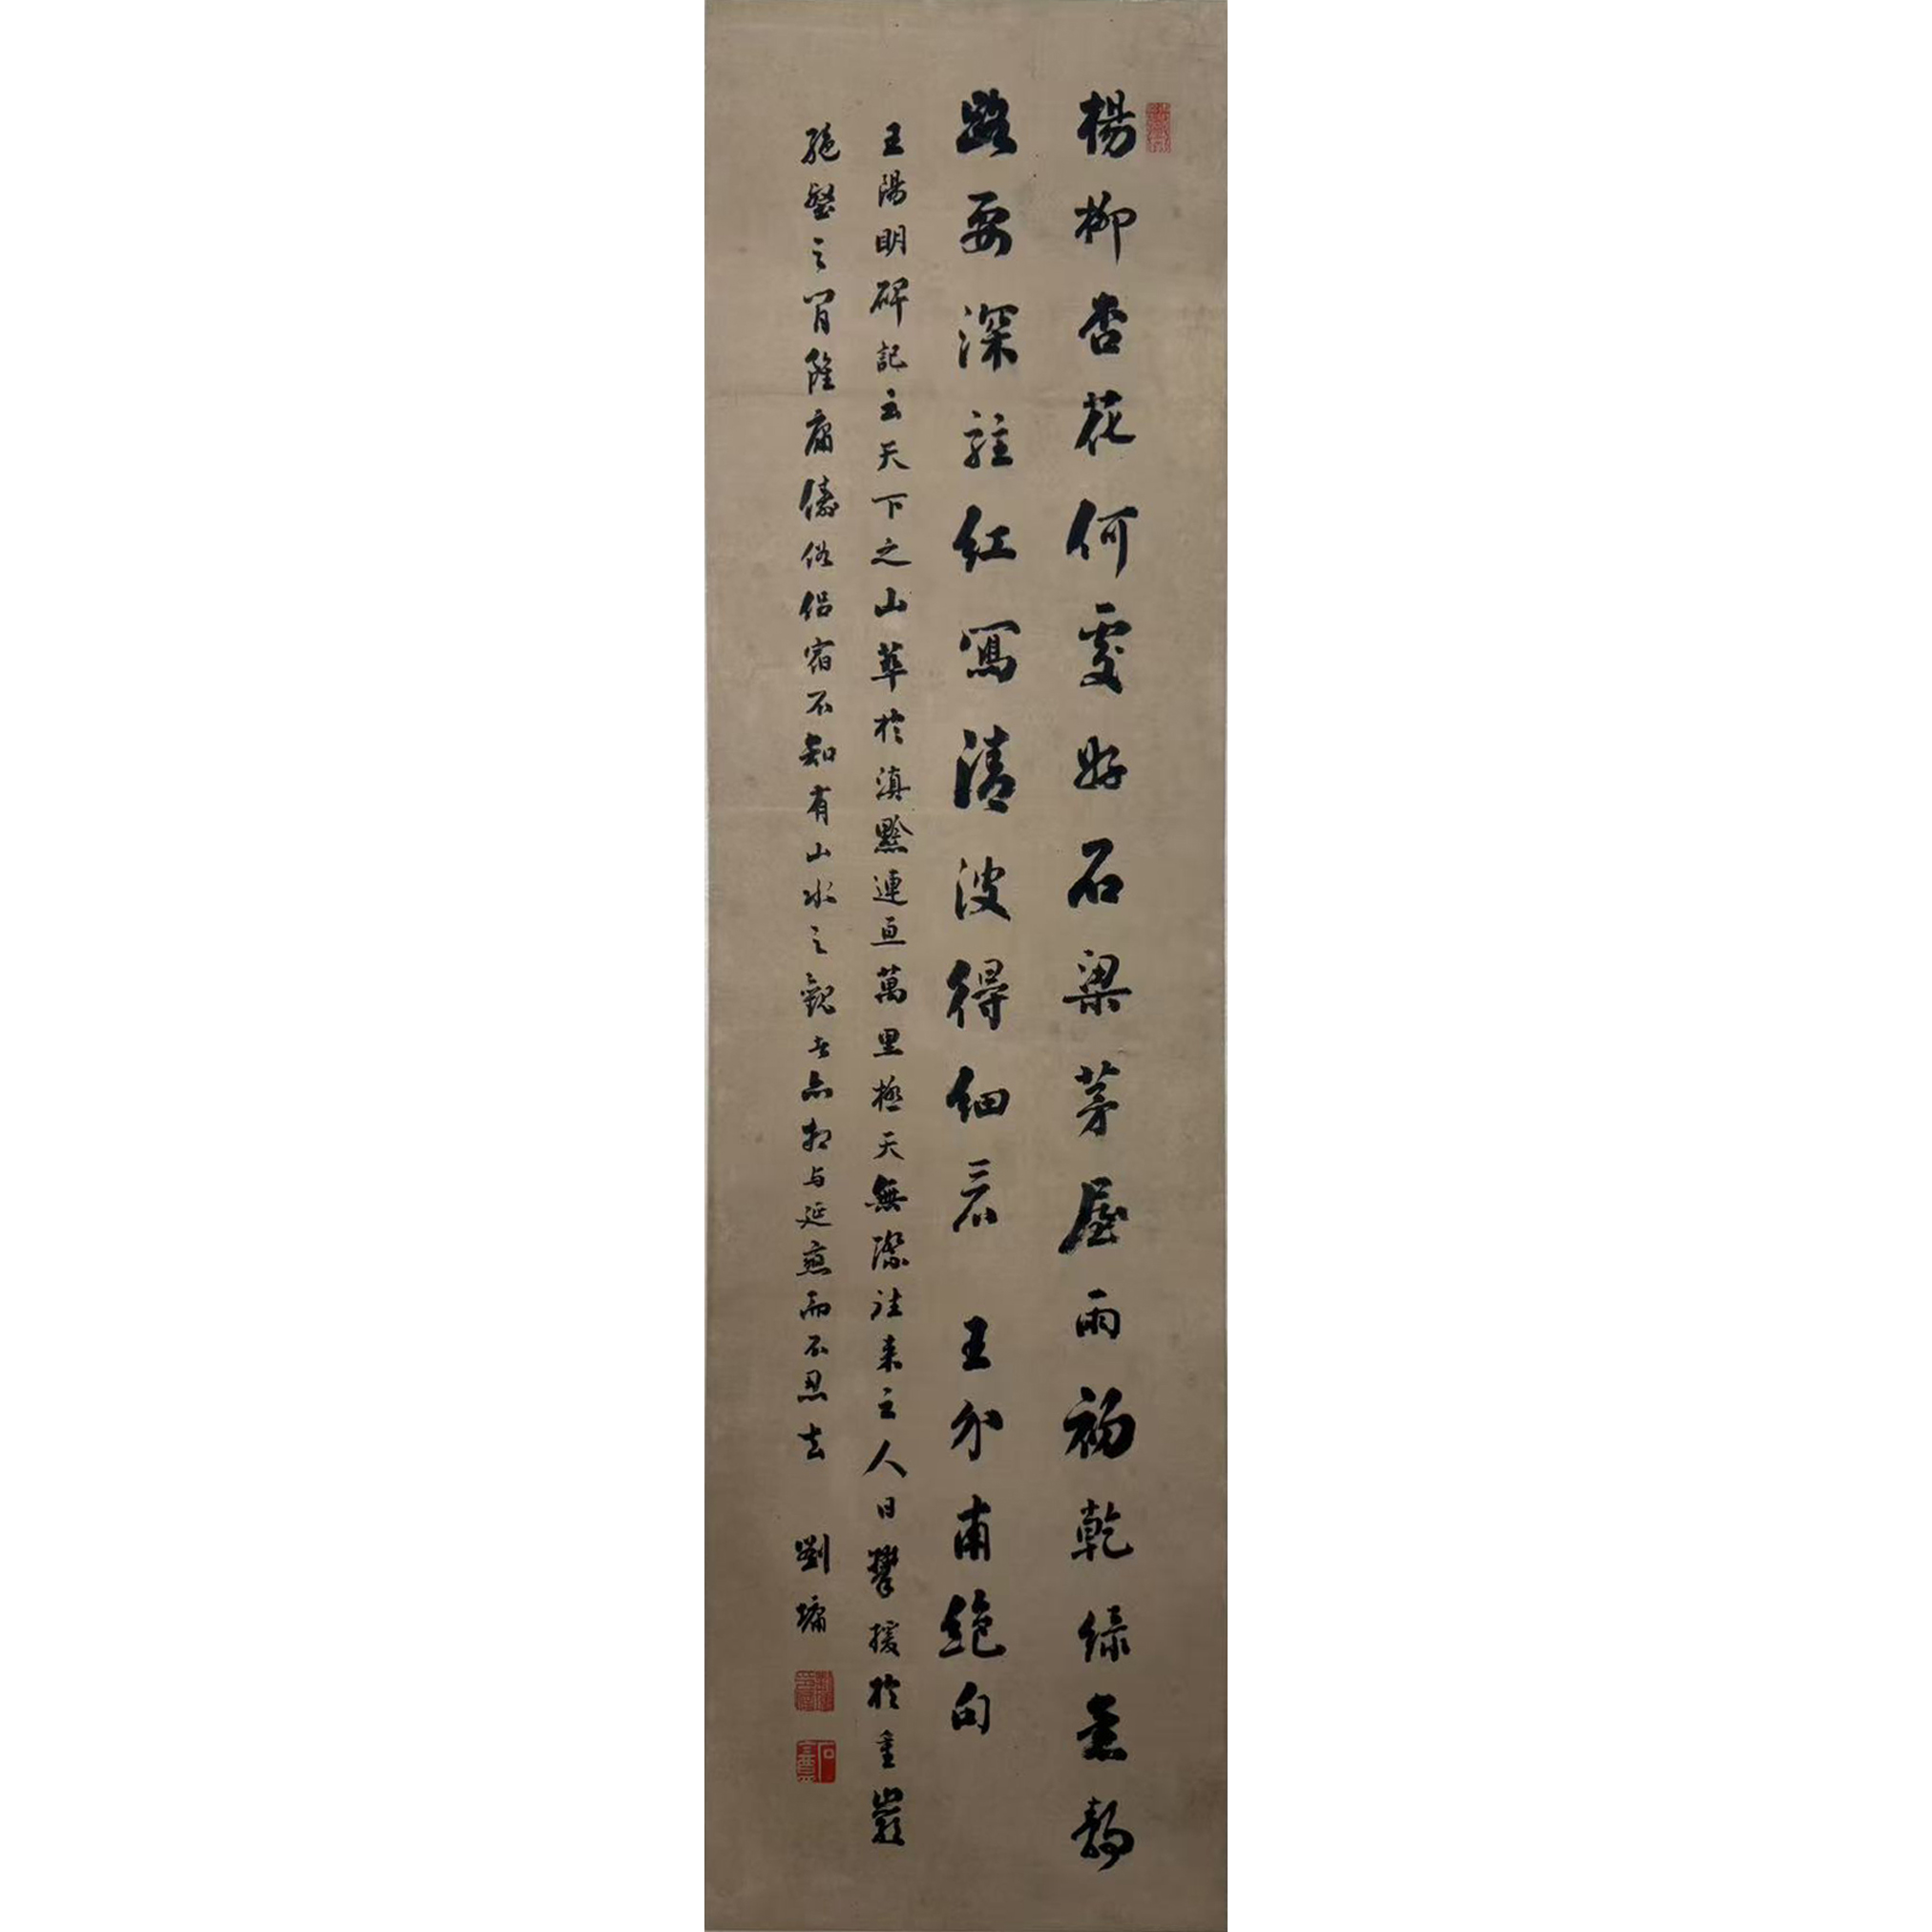 楊柳杏花何處好石梁茅屋雨初乾綠垂靜
路要深駐紅寫清波得細看 王介甫絕句
王陽明碑記云天下之山萃於滇黔連亘萬里極天無際往來之人日攀援於重巖
絕壑之間雖庸儔俗侶宿不知有山水之觀者亦相与延戀而不忍去 劉墉